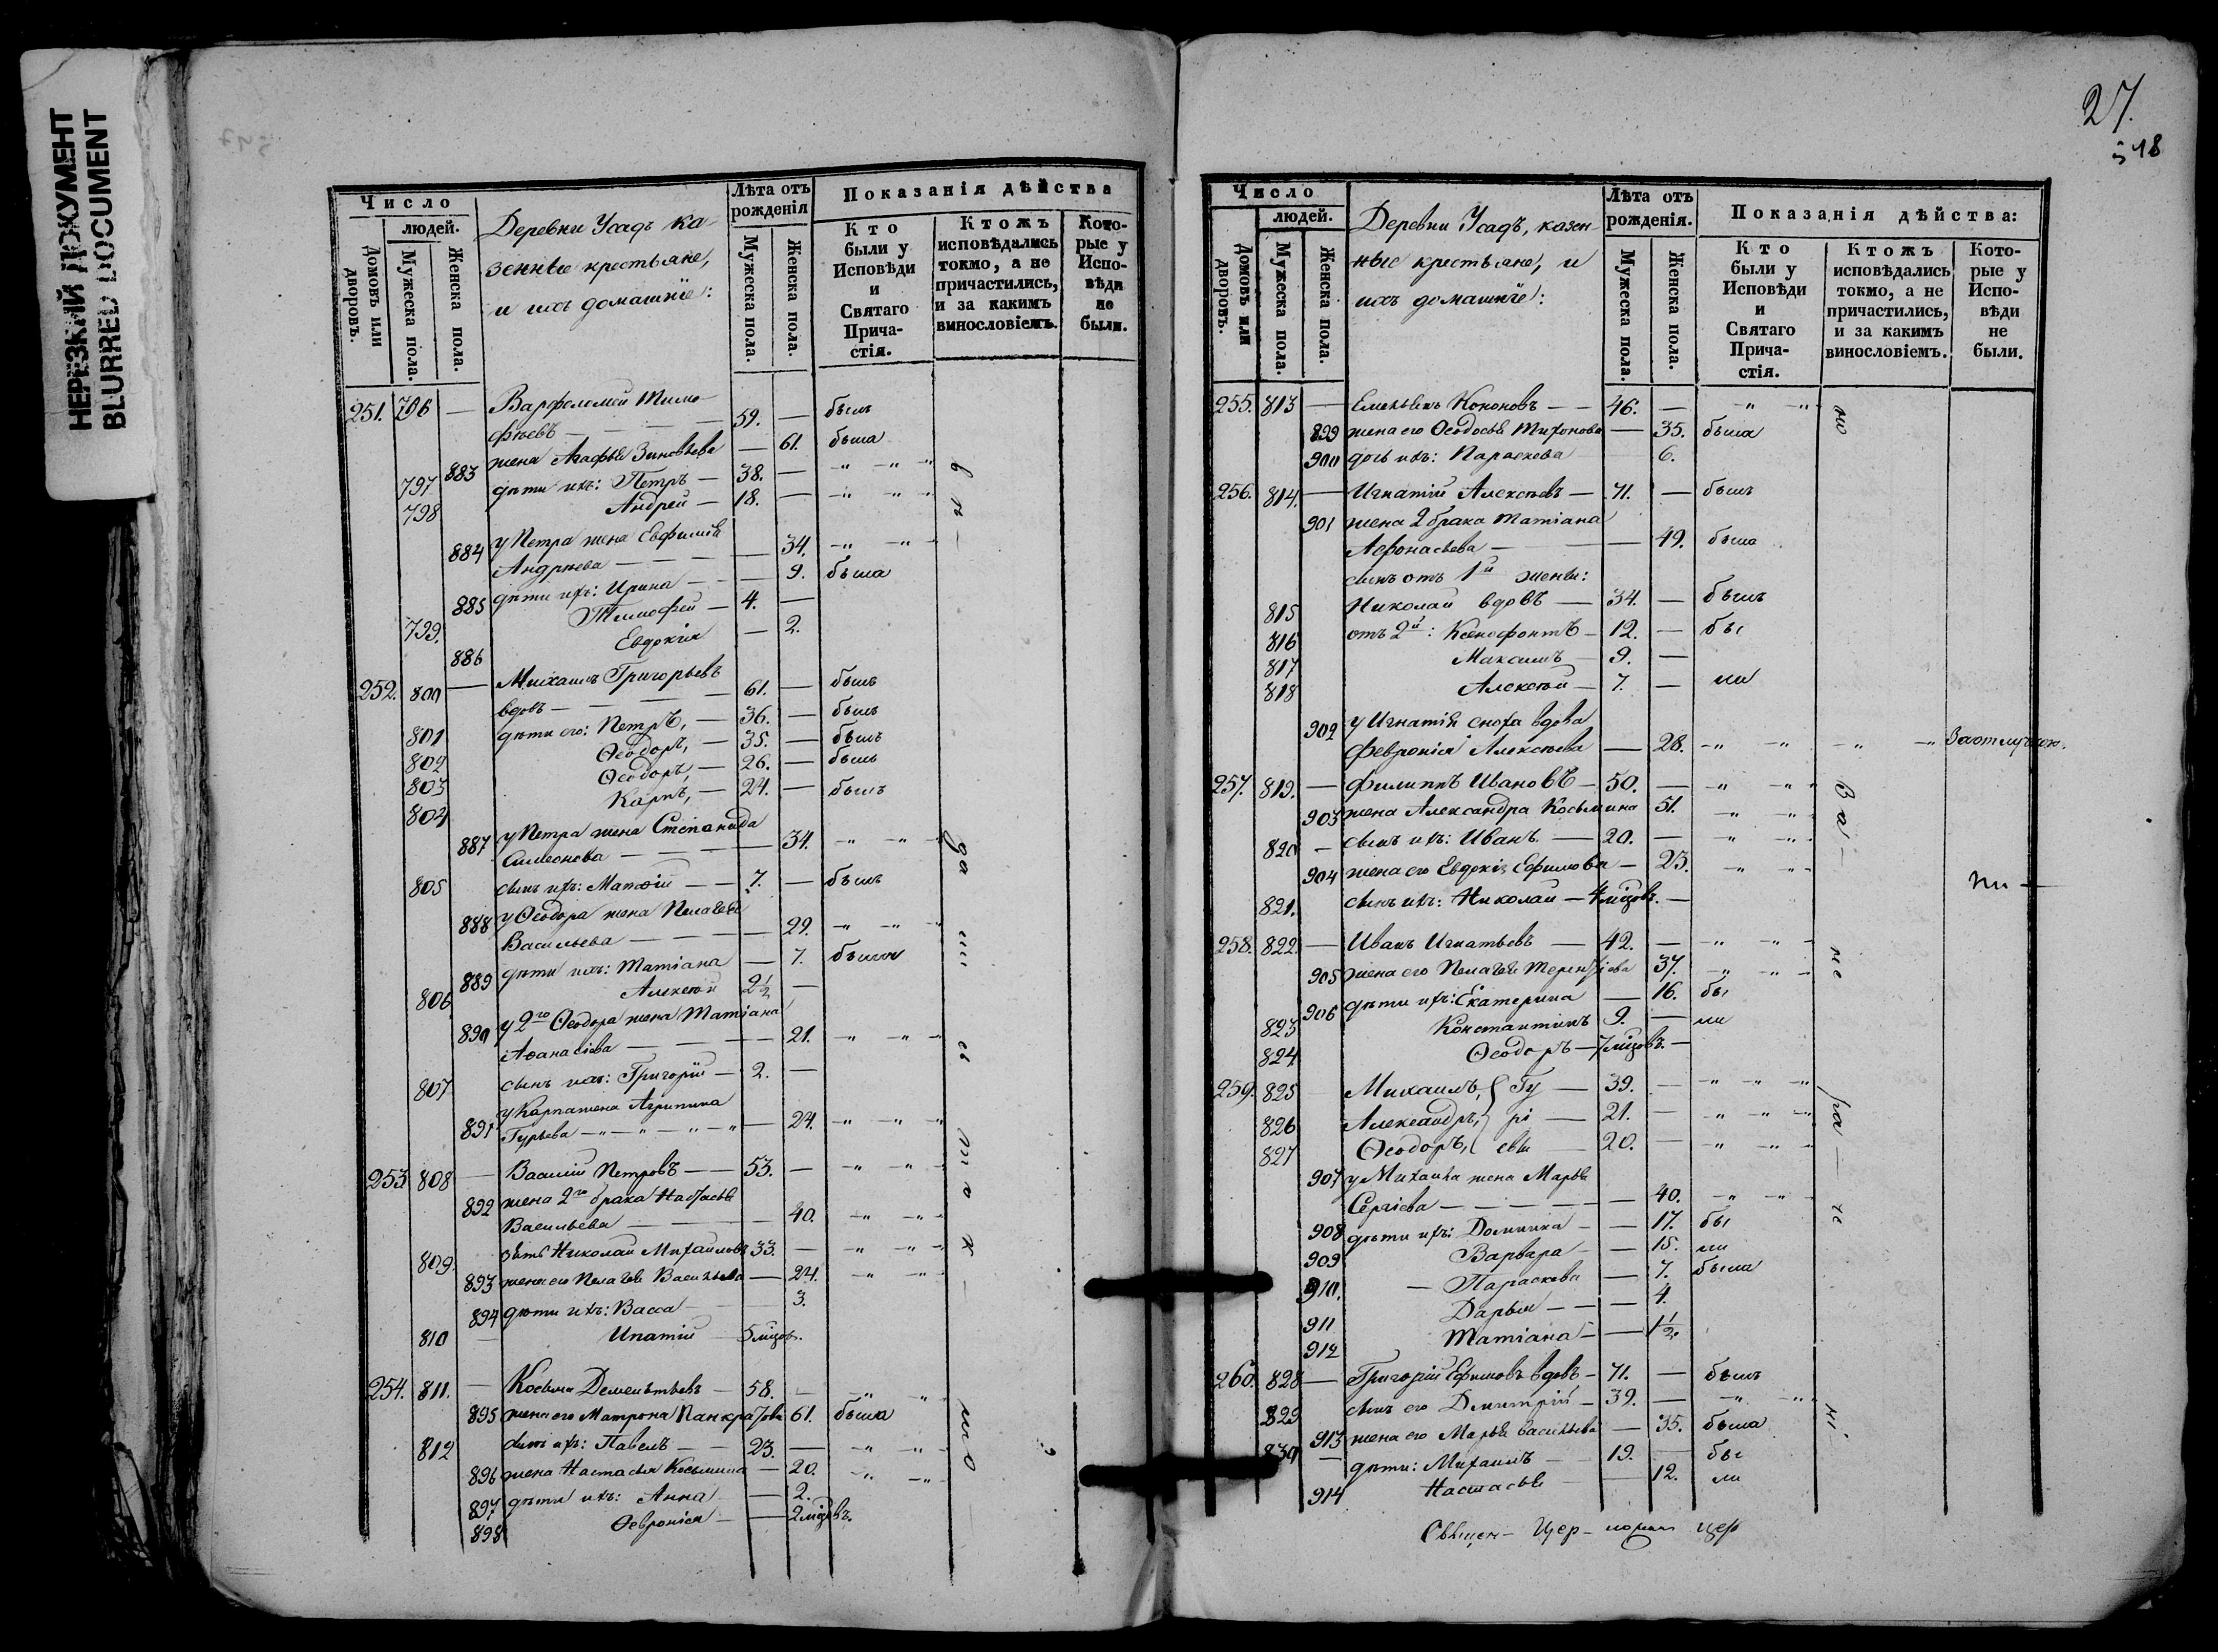 НЕРЕЗКИЙ ДОКУМЕНТ
BLURRED DOCUMENT
27.
518
Число
людей.
Домовъ или дворовъ.
Мужеска пола.
Женска пола.
Деревни Усадъ ка-
зенные крестьяне,
и ихъ домашніе:
Лѣта отъ рожденія
Мужеска пола.
Женска пола.
Показанія дѣйства
Кто были у Исповѣди и Святаго Прича-стія.
Ктожъ исповѣдались токмо, а не причастились, и за какимъ винословіемъ.
Кото-рые у Испо-вѣди не были.
251. 796 — Варфоломей Тимо-
фѣевъ — 59. — былъ
883 жена Агафья Зиновьева — 61. была
797 дѣти ихъ: Петръ — 38. — -„- -„-
798 Андрей — 18. — -„- -„-
884 у Петра жена Евфимія
Андрѣева — 34. -„- -„-
885 дѣти ихъ: Ирина — 9. была
799. Тимофей — 4. —
886 Евдокія — 2.
252. 800 — Михаилъ Григорьевъ
вдовъ — 61. — былъ
801 дѣти его: Петръ, — 36. — былъ
802 Ѳеодоръ, — 35. — былъ
803 Ѳеодоръ, — 26. — былъ
804 Карпъ, — 24. — былъ
887 у Петра жена Степанида
Симеонова — 34. -„- -„-
805 сынъ ихъ: Матѳій — 7. — былъ
888 у Ѳеодора жена Пелагея
Васильева — 29. -„- -„-
889 дѣти ихъ: Татіана — 7. была
806 Алексѣй 2½ —
890 у 2го Ѳеодора жена Татіана
Аѳанасіева — 21. -„- -„-
807 сынъ ихъ: Григорій — 2. —
891 у Карпа жена Агрипина
Гурьева — 24. -„- -„-
253 808 — Василій Петровъ — 53. — -„- -„-
892 жена 2го брака Настасья
Васильева — 40. -„- -„-
809. зять Николай Михайловъ 33. — -„- -„-
893 жена его Пелагея Васильева — 24. -„- -„-
894 дѣти ихъ: Васса — 3.
810 — Ипатій — 5 мѣцов.
254. 811. — Косьма Дементьевъ — 58. — -„- -„-
895 жена его Матрона Панкратова 61. была
812 сынъ ихъ: Павелъ — 23. — -„- -„-
896 жена Настасья Косьмина — 20. -„- -„-
897 дѣти ихъ: Анна — 2.
898 Ѳевронія — 2 мѣцовъ.
Число
людей.
Домовъ или дворовъ.
Мужеска пола.
Женска пола.
Деревни Усадъ, казен-
ные крестьяне, и
ихъ домашніе:
Лѣта отъ рожденія.
Мужеска пола.
Женска пола.
Показанія дѣйства:
Кто были у Исповѣди и Святаго Прича-стія.
Ктожъ исповѣдались токмо, а не причастились, и за какимъ винословіемъ.
Кото-рые у Испо-вѣди не были.
255. 813 — Емельянъ Кононовъ — 46. — -„- -„-
899 жена его Ѳеодосья Тихонова — 35. была
900 дочь ихъ: Параскева 6.
256. 814. — Игнатій Алексѣевъ — 71. — былъ
901 жена 2 брака Татіана
Афонасьева — 49. была
сынъ отъ 1й жены:
815 Николай вдовъ — 34. — былъ
816 отъ 2й: Ксенофонтъ — 12. — бы
817 Максимъ 9. —
818 Алексѣй — 7. — ли
902 у Игнатія сноха вдова
Февронія Алексѣева — 28. -„- -„- -„- -„- За отлучкою.
257. 819. — Филиппъ Ивановъ — 50. — -„- -„-
903 жена Александра Косьмина 51. -„- -„-
820 — сынъ ихъ: Иванъ — 20. — -„- -„-
904 жена его Евдокія Ефимова — 23. -„- -„-
821. сынъ ихъ: Николай — 4 мѣцовъ. —
258. 822. — Иванъ Игнатьевъ — 42. — -„- -„-
905 жена его Пелагея Терентіева 37. -„- -„-
906 дѣти ихъ: Екатерина — 16. бы
823 Константинъ 9. — ли
824 Ѳеодоръ — 7 мѣцовъ. —
259. 825 Михаилъ, { Гу — 39. — -„- -„-
826 Александръ, } рі — 21. — -„- -„-
827 Ѳеодоръ, { евы 20. — -„- -„-
907 у Михаила жена Марья
Сергіева — 40. -„- -„-
908 дѣти ихъ: Домника — 17. бы
909 Варвара — 15. ли
910. — Параскева — 7. была
911 Дарья — 4.
912 Татіана — 1½
260. 828 — Григорій Ефимовъ вдовъ — 71. — былъ
829 сынъ его Димитрій — 39. — -„- -„-
913 жена его Марья Васильева — 35. была
830 — дѣти: Михаилъ — 19. — бы
914 Настасья — 12. ли